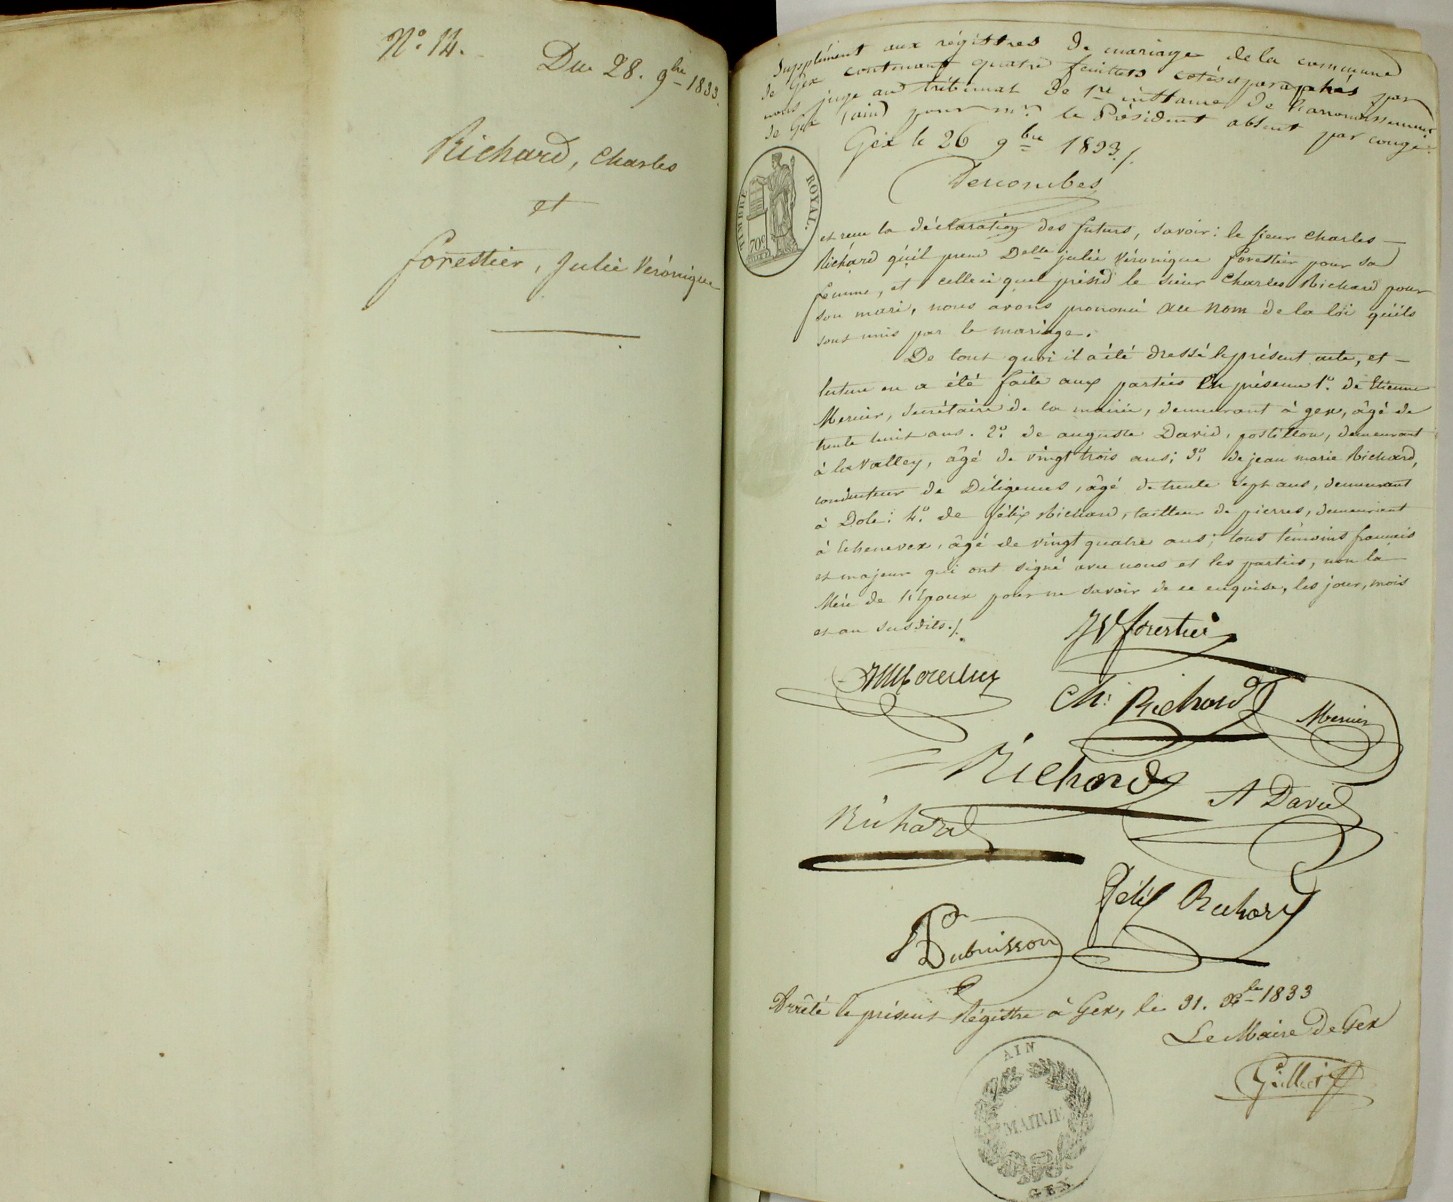 N.º 14.
Du 28. 9bre 1833.
Richard, Charles
et
forestier, Julie Véronique
Supplément aux régistres de mariage de la commune
de Gex contenant quatre feuillets cotés et paraphés par
nous juge au tribunal de 1re instance de l'arrondissement
de Gex (ain) pour mr. le Président absent par congé.
Gex le 26 9bre 1833./.
Descombes
TIMBRE ROYAL.
70c
et reçu la déclaration des futurs, savoir: le sieur Charles
Richard qu'il prend Delle julie véronique forestier pour sa
femme, et celle ci quel prend le sieur Charles Richard pour
son mari, nous avons prononcé au nom de la loi qu'ils
sont unis par le mariage.
De tout quoi il a été dressé le présent acte, et
lecture en a été faite aux parties En présence 1º. de Etienne
Mercier, secrétaire de la mairie, demeurant à gex, âgé de
trente huit ans. 2º. de auguste David, postillon, demeurant
à la Valley, âgé de vingt trois ans; 3º. de jean marie Richard,
conducteur de Diligences, âgé de trente sept ans, demeurant
à Dole; 4º. de félix Richard, tailleur de pierres, demeurant
à Echenevex, âgé de vingt quatre ans; tous témoins français
et majeur qui ont signé avec nous et les parties, non la
Mère de l'époux pour ne savoir de ce enquise, les jour, mois
et an susdits./.
JV forestier
Ch: Richard
Mercier
Richard
A David
Richard
félix Richard
Dubuisson
Arrêté le présent Régistre à Gex, le 31. Xbre 1833
Le Maire de Gex
AIN
MAIRIE
GEX